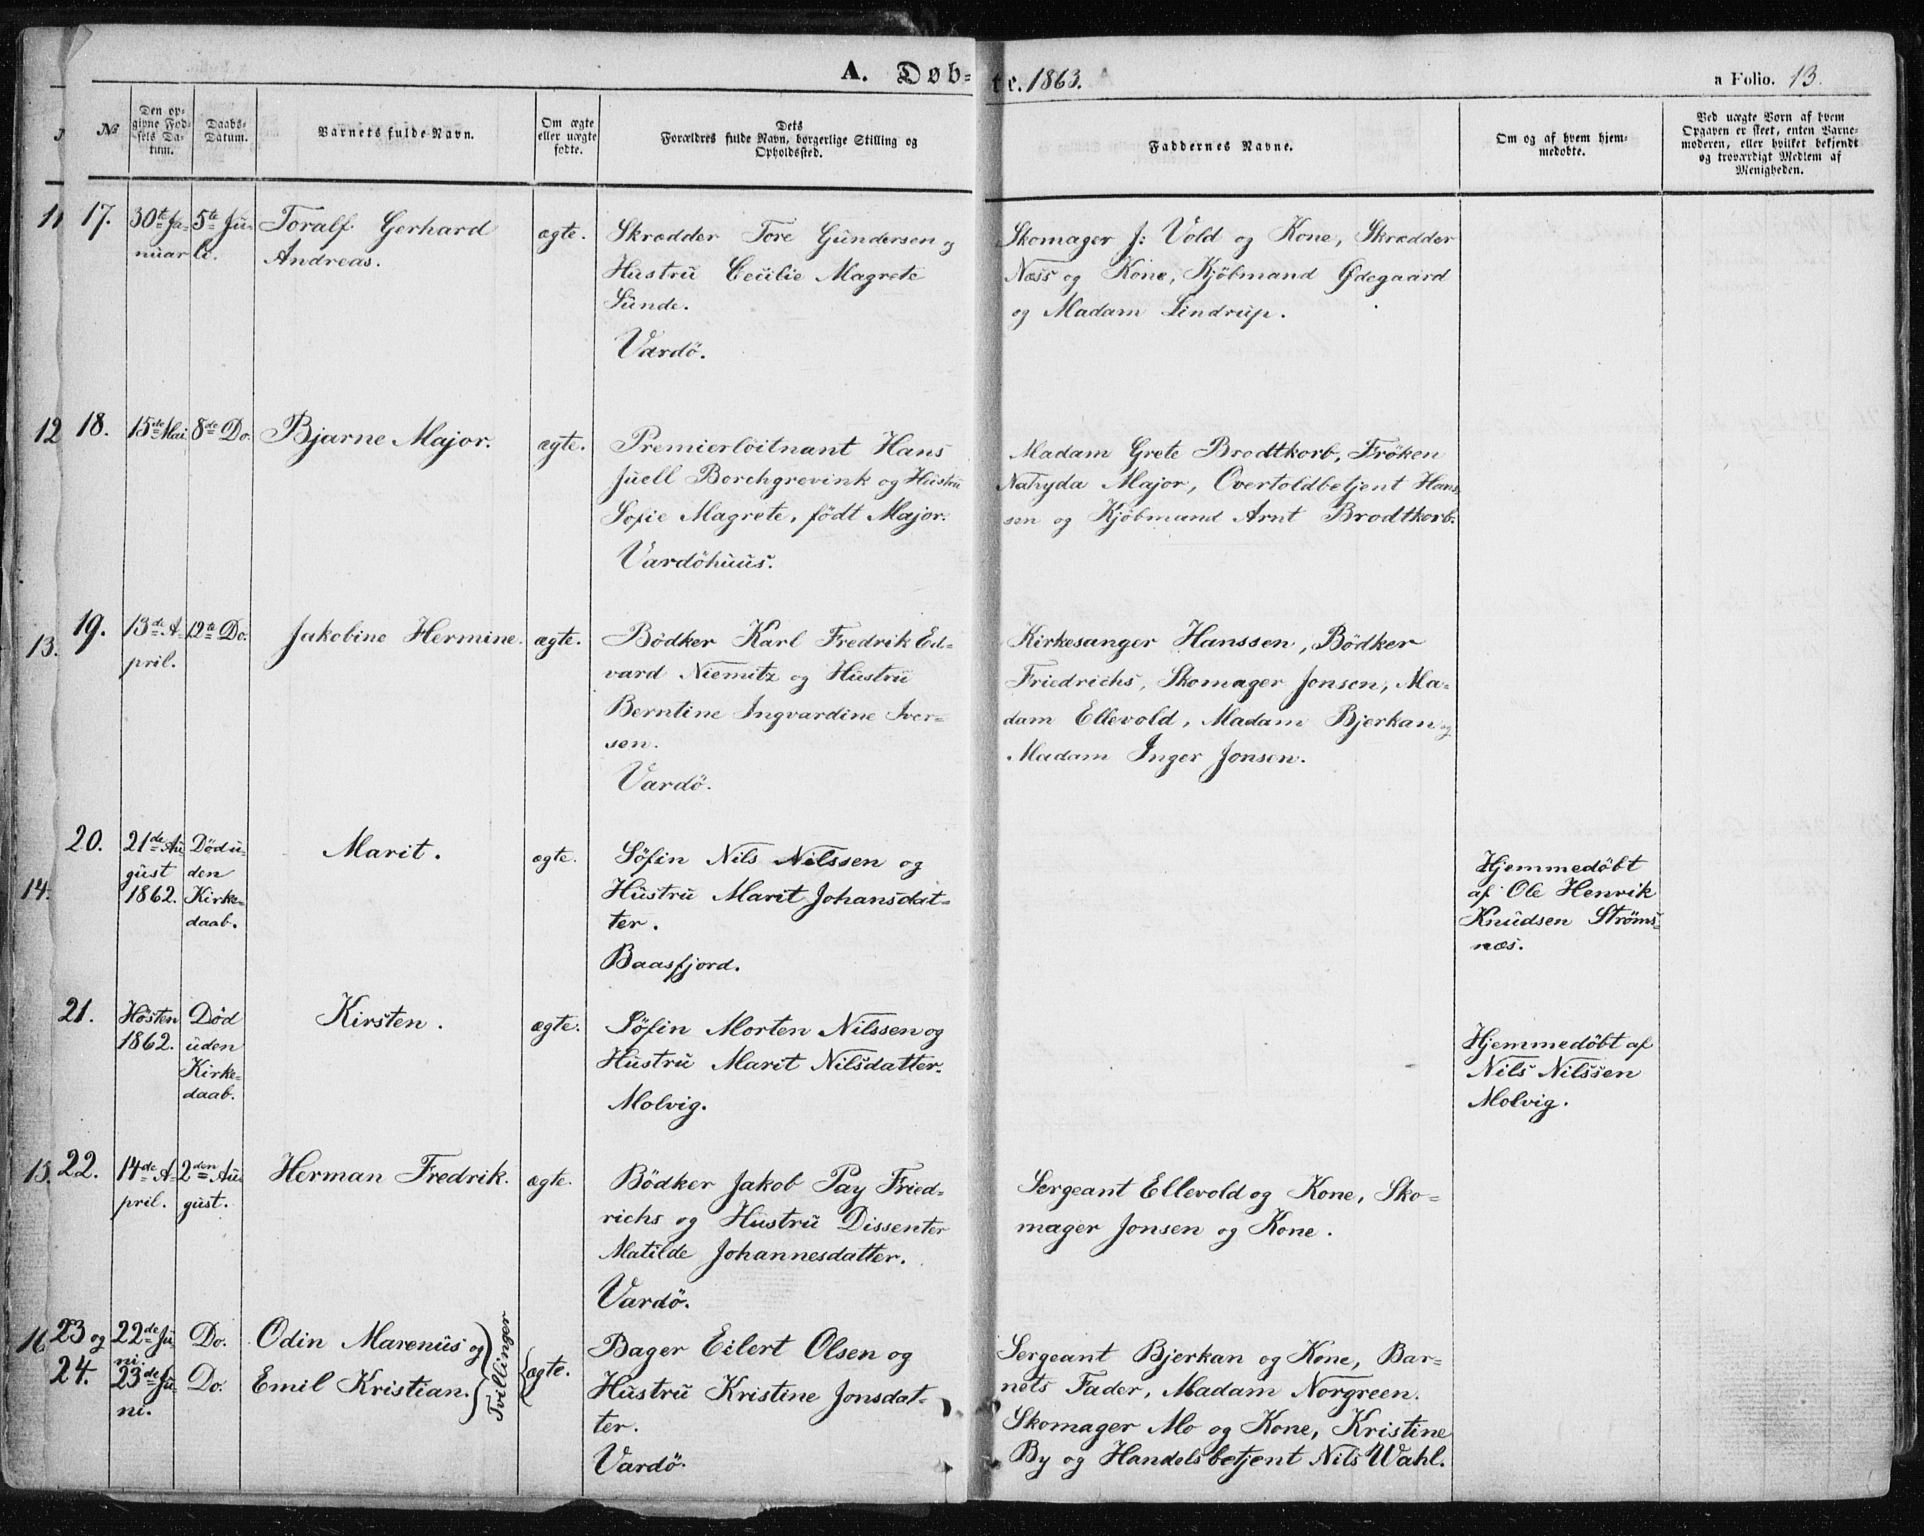 A. Døb-
te. 1863.
a Folio. 13.
№
Den op-
givne Fød-
sels Da-
tum.
Daabs-
Datum.
Barnets fulde Navn.
Om ægte
eller uægte
fødte.
Dets
Forældres fulde Navn, borgerlige Stilling og
Opholdssted.
Faddernes Navne.
Om og af hvem hjem-
medøbte.
Ved uægte Born af hvem
Opgaven er skeet, enten Barne-
moderen, eller hvilket bekjendt
og troværdigt Medlem af
Menigheden.
11 17. 30te Ja-
nuar
5te Ju-
li.
Toralf Gerhard
Andreas.
ægte.
Skrædder Tore Gundersen og
Hustru Cecilie Magrete
Sunde.
Vardö.
Skomager J: Vold og Kone, Skrædder
Næss og Kone, Kjöbmand Ødegaard
og Madam Lindrup.
12 18. 15de Mai
8de Do.
Bjarne Major.
ægte.
Premierlöitnant Hans
Juell Borchgrevink og Hustru
Sofie Magrete, födt Major.
Vardöhuus.
Madam Grete Brodtkorb, Fröken
Major, Overtoldbetjent Hans-
sen og Kjöbmand Arnt Brodtkorb.
13. 19. 13de A-
pril.
12te Do.
Jakobine Hermine.
ægte.
Bödker Karl Fredrik Ed-
vard Niemitz og Hustru
Berntine Ingvardine Iver-
sen.
Vardö.
Kirkesanger Hanssen, Bödker
Friedrichs, Skomager Jonsen, Ma-
dam Ellevold, Madam Bjerkan og
Madam Inger Jonsen.
14. 20. 21de Au-
gust
1862.
Død u-
den
Kirke-
daab.
Marit.
ægte.
Söfin Nils Nilssen og
Hustru Marit Johansdat-
ter.
Baasfjord.
Hjemmedöbt
af Ole Henrik
Knudsen Ströms-
næs.
21. Hösten
1862.
Död
uden
Kirke-
daab.
Kirsten.
ægte.
Söfin Morten Nilssen og
Hustru Marit Nilsdatter.
Molvig.
Hjemmedöbt af
Nils Nilssen
Molvig.
15. 22. 14de A-
pril.
2den Au-
gust.
Herman Fredrik.
ægte.
Bödker Jakob Pay Fried-
richs og Hustru Dissenter
Matilde Johannesdatter.
Vardö.
Sergeant Ellevold og Kone, Sko-
mager Jonsen og Kone.
16 23 og
24.
22de Ju-
ni.
23de Ju-
ni.
Do.
Do.
Odin Marenius og
Emil Kristian.
Tvillinger
ægte.
Bager Eilert Olsen og
Hustru Kristine Jonsdat-
ter.
Vardö.
Sergeant Bjerkan og Kone, Bar-
nets Fader, Madam Norgreen.
Skomager Mo og Kone, Kristine
By og Handelsbetjent Nils Wahl.